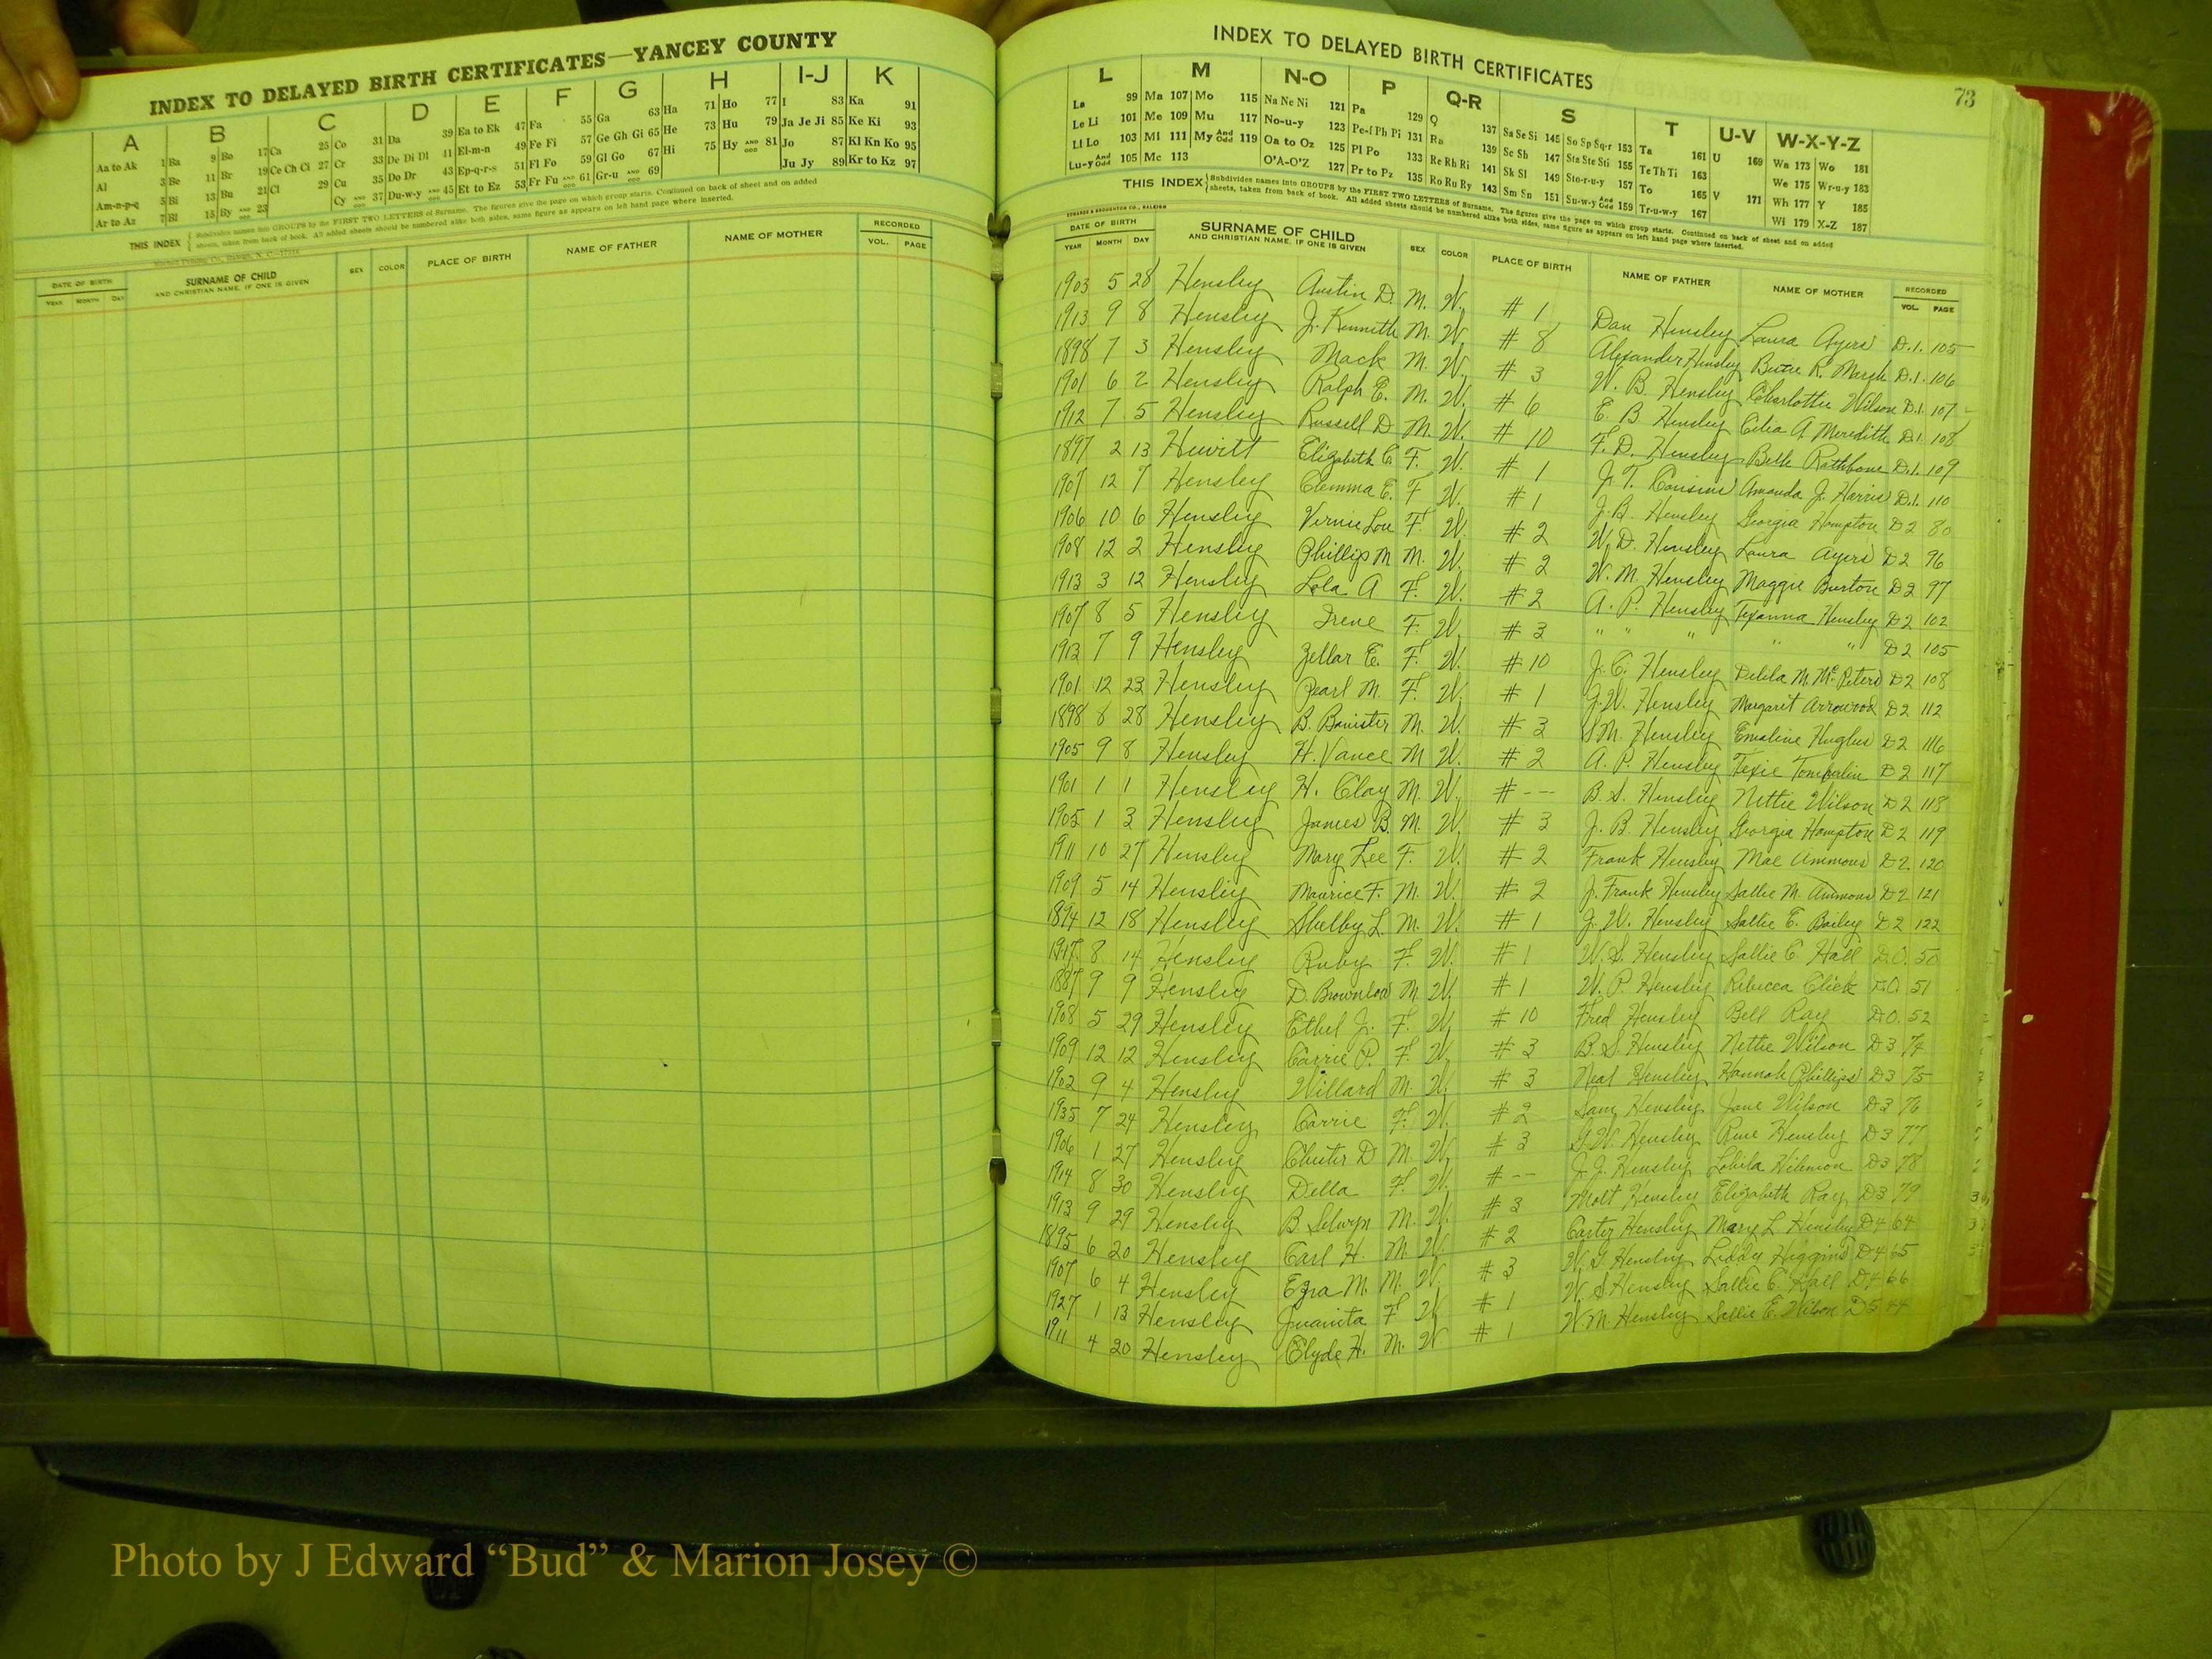 INDEX TO DELAYED BIRTH CERTIFICATES—YANCEY COUNTY
A B C D E F G H I-J K
Aa to Ak 1 Ba 9 Bo 17 Ca 25 Co 31 Da 39 Ea to Ek 47 Fa 55 Ga 63 Ha 71 Ho 77 I 83 Ka 91
Al 3 Be 11 Br 19 Ce Ch Ci 27 Cr 33 De Di Dl 41 El-m-n 49 Fe Fi 57 Ge Gh Gi 65 He 73 Hu 79 Ja Je Ji 85 Ke Ki 93
Am-n-p-q 5 Bi 13 Bu 21 Cl 29 Cu 35 Do Dr 43 Ep-q-r-s 51 Fl Fo 59 Gl Go 67 Hi 75 Hy AND ODD 81 Jo 87 Kl Kn Ko 95
Ar to Az 7 Bl 15 By AND ODD 23 Cy AND ODD 37 Du-w-y AND ODD 45 Et to Ez 53 Fr Fu AND ODD 61 Gr-u AND ODD 69 Ju Jy 89 Kr to Kz 97
THIS INDEX Subdivides names into GROUPS by the FIRST TWO LETTERS of Surname. The figures give the page on which group starts. Continued on back of sheet and on added
sheets, taken from back of book. All added sheets should be numbered alike both sides, same figure as appears on left hand page where inserted.
DATE OF BIRTH SURNAME OF CHILD SEX COLOR PLACE OF BIRTH NAME OF FATHER NAME OF MOTHER RECORDED
YEAR MONTH DAY AND CHRISTIAN NAME, IF ONE IS GIVEN VOL. PAGE
INDEX TO DELAYED BIRTH CERTIFICATES
73
L M N-O P Q-R S T U-V W-X-Y-Z
La 99 Ma 107 Mo 115 Na Ne Ni 121 Pa 129 Q 137 Sa Se Si 145 So Sp Sq-r 153 Ta 161 U 169 Wa 173 Wo 181
Le Li 101 Me 109 Mu 117 No-u-y 123 Pe-f Ph Pi 131 Ra 139 Sc Sh 147 Sta Ste Sti 155 Te Th Ti 163 We 175 Wr-u-y 183
Ll Lo 103 Mi 111 My And Odd 119 Oa to Oz 125 Pl Po 133 Re Rh Ri 141 Sk Sl 149 Sto-r-u-y 157 To 165 V 171 Wh 177 Y 185
Lu-y And Odd 105 Mc 113 O'A-O'Z 127 Pr to Pz 135 Ro Ru Ry 143 Sm Sn 151 Su-w-y And Odd 159 Tr-u-w-y 167 Wi 179 X-Z 187
THIS INDEX Subdivides names into GROUPS by the FIRST TWO LETTERS of Surname. The figures give the page on which group starts. Continued on back of sheet and on added
sheets, taken from back of book. All added sheets should be numbered alike both sides, same figure as appears on left hand page where inserted.
EDWARDS & BROUGHTON CO., RALEIGH
DATE OF BIRTH SURNAME OF CHILD SEX COLOR PLACE OF BIRTH NAME OF FATHER NAME OF MOTHER RECORDED
YEAR MONTH DAY AND CHRISTIAN NAME, IF ONE IS GIVEN VOL. PAGE
1903 5 28 Hensley Austin D. M. W. # 1 Dan Hensley Laura Ayers D.1. 105
1913 9 8 Hensley J. Kenneth M. W. # 8 Alexander Hensley R. Marsh D.1. 106
1898 7 3 Hensley Mack M. W. # 3 W. B. Hensley Charlottie Wilson D.1. 107
1901 6 2 Hensley Ralph E. M. W. # 6 E. B. Hensley Celia A. Meredith D.1. 108
1912 7 5 Hensley Russell D M. W. # 10 F. D. Hensley Belle Rathbone D.1. 109
1897 2 13 Hewitt Elizabeth C. F. W. # 1 J. T. Cousins Amanda J. Harris D.1. 110
1907 12 7 Hensley Clemma E. F W. # 1 J. B. Hensley Georgia Hampton D2 80
1906 10 6 Hensley Vernie Lou F W. # 2 W. D. Hensley Laura Ayers D2 96
1908 12 2 Hensley Phillip M M. W. # 2 W. M. Hensley Maggie Burton D2 97
1913 3 12 Hensley Lola A F. W. # 2 A. P. Hensley Texanna Hensley D2 102
1907 8 5 Hensley Irene F. W. # 3 " " " " " D2 105
1913 7 9 Hensley Zellar E. F. W. # 10 J. C. Hensley Delila M. McPeters D2 108
1901 12 23 Hensley Pearl M. F. W. # 1 J. W. Hensley Margaret Arrowood D2 112
1898 8 28 Hensley B. Banister M. W. # 3 S M. Hensley Emaline Hughes D2 116
1905 9 8 Hensley H. Vance M W. # 2 A. P. Hensley Texie Tomberlin D2 117
1901 1 1 Hensley H. Clay M. W. # -- B. S. Hensley Nettie Wilson D2 118
1905 1 3 Hensley James B. M. W. # 3 J. B. Hensley Georgia Hampton D2 119
1911 10 27 Hensley Mary Lee F. W. # 2 Frank Hensley Mae Ammons D2. 120
1909 5 14 Hensley Maurice F. M. W. # 2 J. Frank Hensley Sallie M. Ammons D2 121
1894 12 18 Hensley Shelby L. M. W. # 1 J. W. Hensley Sallie E. Bailey D2 122
1917 8 14 Hensley Ruby F. W. # 1 W. S. Hensley Sallie C Hall D.O. 50
1887 9 9 Hensley D. Brownlow M. W. # 1 W. P. Hensley Rebecca Click D.O. 51
1908 5 29 Hensley Ethel J. F. W. # 10 Fred Hensley Bell Ray D.O. 52
1909 12 12 Hensley Carrie P. F. W. # 3 B. S. Hensley Nettie Wilson D3 74
1902 9 4 Hensley Willard M. W. # 3 Neal Hensley Hannah Phillips D3 75
1935 7 24 Hensley Carrie F. W. # 2 Sam Hensley Jane Wilson D3 76
1906 1 27 Hensley Chester D M. W. # 3 G. W. Hensley Rene Hensley D3 77
1914 8 30 Hensley Della F. W. # -- J. J. Hensley D3 78
1913 9 29 Hensley B. Selwyn M. W. # 3 Molt Hensley Elizabeth Ray D3 79
1895 6 20 Hensley Carl H. M W. # 2 Carter Hensley Mary L Hensley D4 64
1907 6 4 Hensley Ezra M. M. W. # 3 Hensley Liddy Higgins D4 65
1927 1 13 Hensley Juanita F W # 1 W. S Hensley Sallie C Hall D4 66
1911 4 20 Hensley Clyde H. M. W # 1 W. M. Hensley Sallie E. Wilson D5 44
Photo by J Edward “Bud” & Marion Josey ©